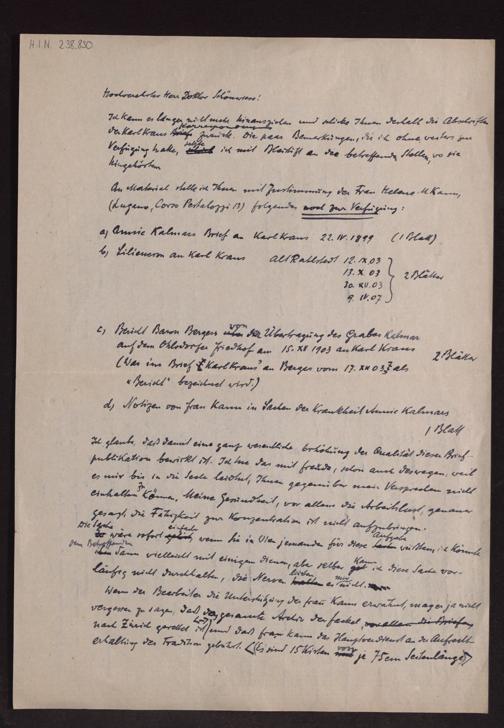 H.I.N. 238.830
Hochverehrter Herr Doktor Schönwiese!
Ich kann es länger nicht mehr hinausziehen und schicke Ihnen deshalb die Abschriften
der Karl Kraus Korrespondenz zurück. Die paar Bemerkungen, die ich ohne weiters zur
Verfügung habe, setzte ich mit Bleistift an den betreffenden Stellen, wo sie
hingehörten
An Material stelle ich Ihnen mit Zustimmung der Frau Helene Kann,
(Lugano, Corso Pestalozzi 13) folgendes noch zur Verfügung:
a) Annie Kalmars Brief an Karl Kraus 22. IV. 1899 (1 Blatt)
b) Liliencron an Karl Kraus Alt Rahlstedt 12. IX 03
13. X 03
30. XII. 03
9. IV. 07
2 Blätter
c) Bericht Baron Bergers über die Übertragung des Grabes Kalmar
auf dem Ohlsdorfer Friedhof am 15. XII 1903 an Karl Kraus
2 Blätter
(War im Brief Karl Kraus an Berger vom 17. XII 03, als
"Bericht" bezeichnet wird.)
d) Notizen von Frau Kann in Sachen der Krankheit Annie Kalmars
1 Blatt
Ich glaube, daß damit eine ganz wesentliche Erhöhung der Qualität dieser Brief-
publikation bewirkt ist. Ich tue das mit Freude, schon auch deswegen, weil
es mir bis in die Seele leidtut, Ihnen gegenüber mein Versprechen nicht
einhalten zu können. Meine Gesundheit, vor allem die Arbeitslust, genauer
gesagt, die Fähigkeit zur Konzentration ist nicht aufzubringen.
Die Sache wäre sofort einfach wenn Sie in Wien jemanden für diese Aufgabe wüßten, ich könnte
dem Betreffenden dann vielleicht mit einigen dienen, aber selber kann ich diese Sache vor-
läufig nicht durchhalten, die Nerven leiden es mir nicht.
Wenn der Bearbeiter die Unterstützung der Frau Kann erwähnt, mag er ja nicht
vergessen zu sagen, daß das gesamte Archiv der Fackel,
nach Zürich gerettet ist und daß Frau Kann das Hauptverdienst an der Aufrecht-
erhaltung der Tradition gebührt. (Es sind 15 Kisten von je 75 cm Seitenlänge)